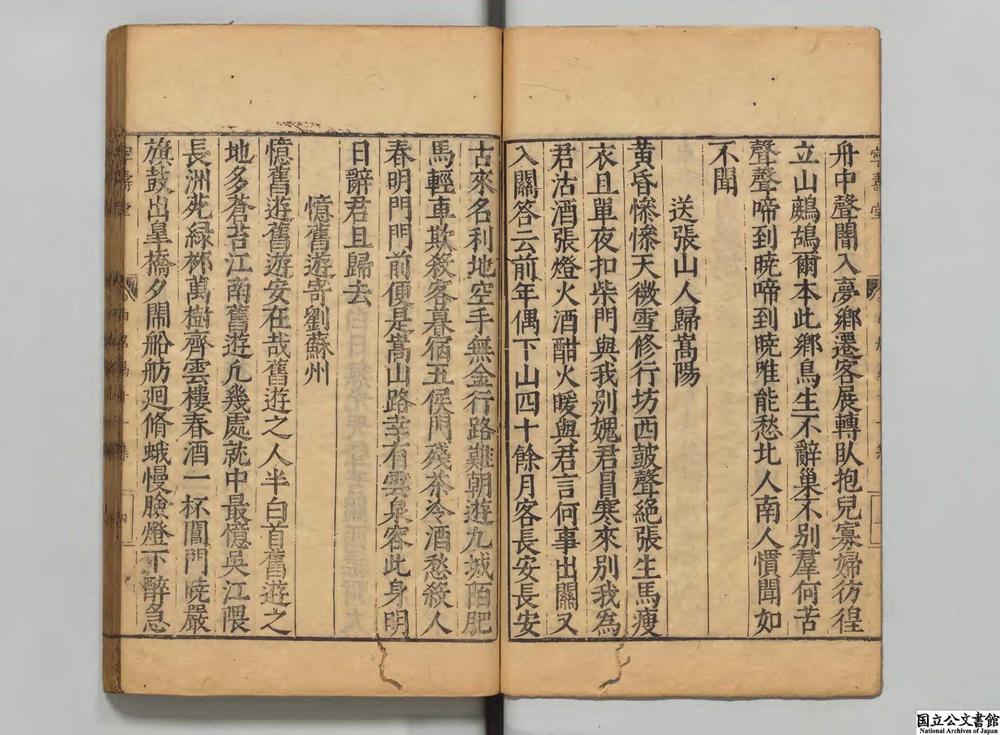 舟中聲聞入夢鄉遷客展轉臥抱兒寡婦彷徨
立山鷓鴣爾本此鄉鳥生不辭巢不別羣何苦
聲聲啼到曉啼到曉唯能愁北人南人慣聞如
不聞
送張山人歸嵩陽
黃昏慘慘天微雪修行坊西鼓聲絕張生馬瘦
衣且單夜扣柴門與我別媿君冒寒來別我為
君沽酒張燈火酒酣火暖與君言何事出關又
入關答云前年偶下山四十餘月客長安長安
古來名利地空手無金行路難朝遊九城陌肥
馬輕車欺殺客暮宿五侯門殘茶冷酒愁殺人
春明門門前便是嵩山路幸有雲泉容此身明
日辭君且歸去
憶舊遊寄劉蘇州
憶舊遊舊遊安在哉舊遊之人半白首舊遊之
地多蒼苔江南舊遊凢幾處就中最憶吳江隈
長洲苑緑柳萬樹齊雲樓春酒一杯閶門曉嚴
旗鼓出臯橋夕鬧船舫廻脩蛾慢臉燈下醉急
寶壽堂
国立公文書館
National Archives of Japan